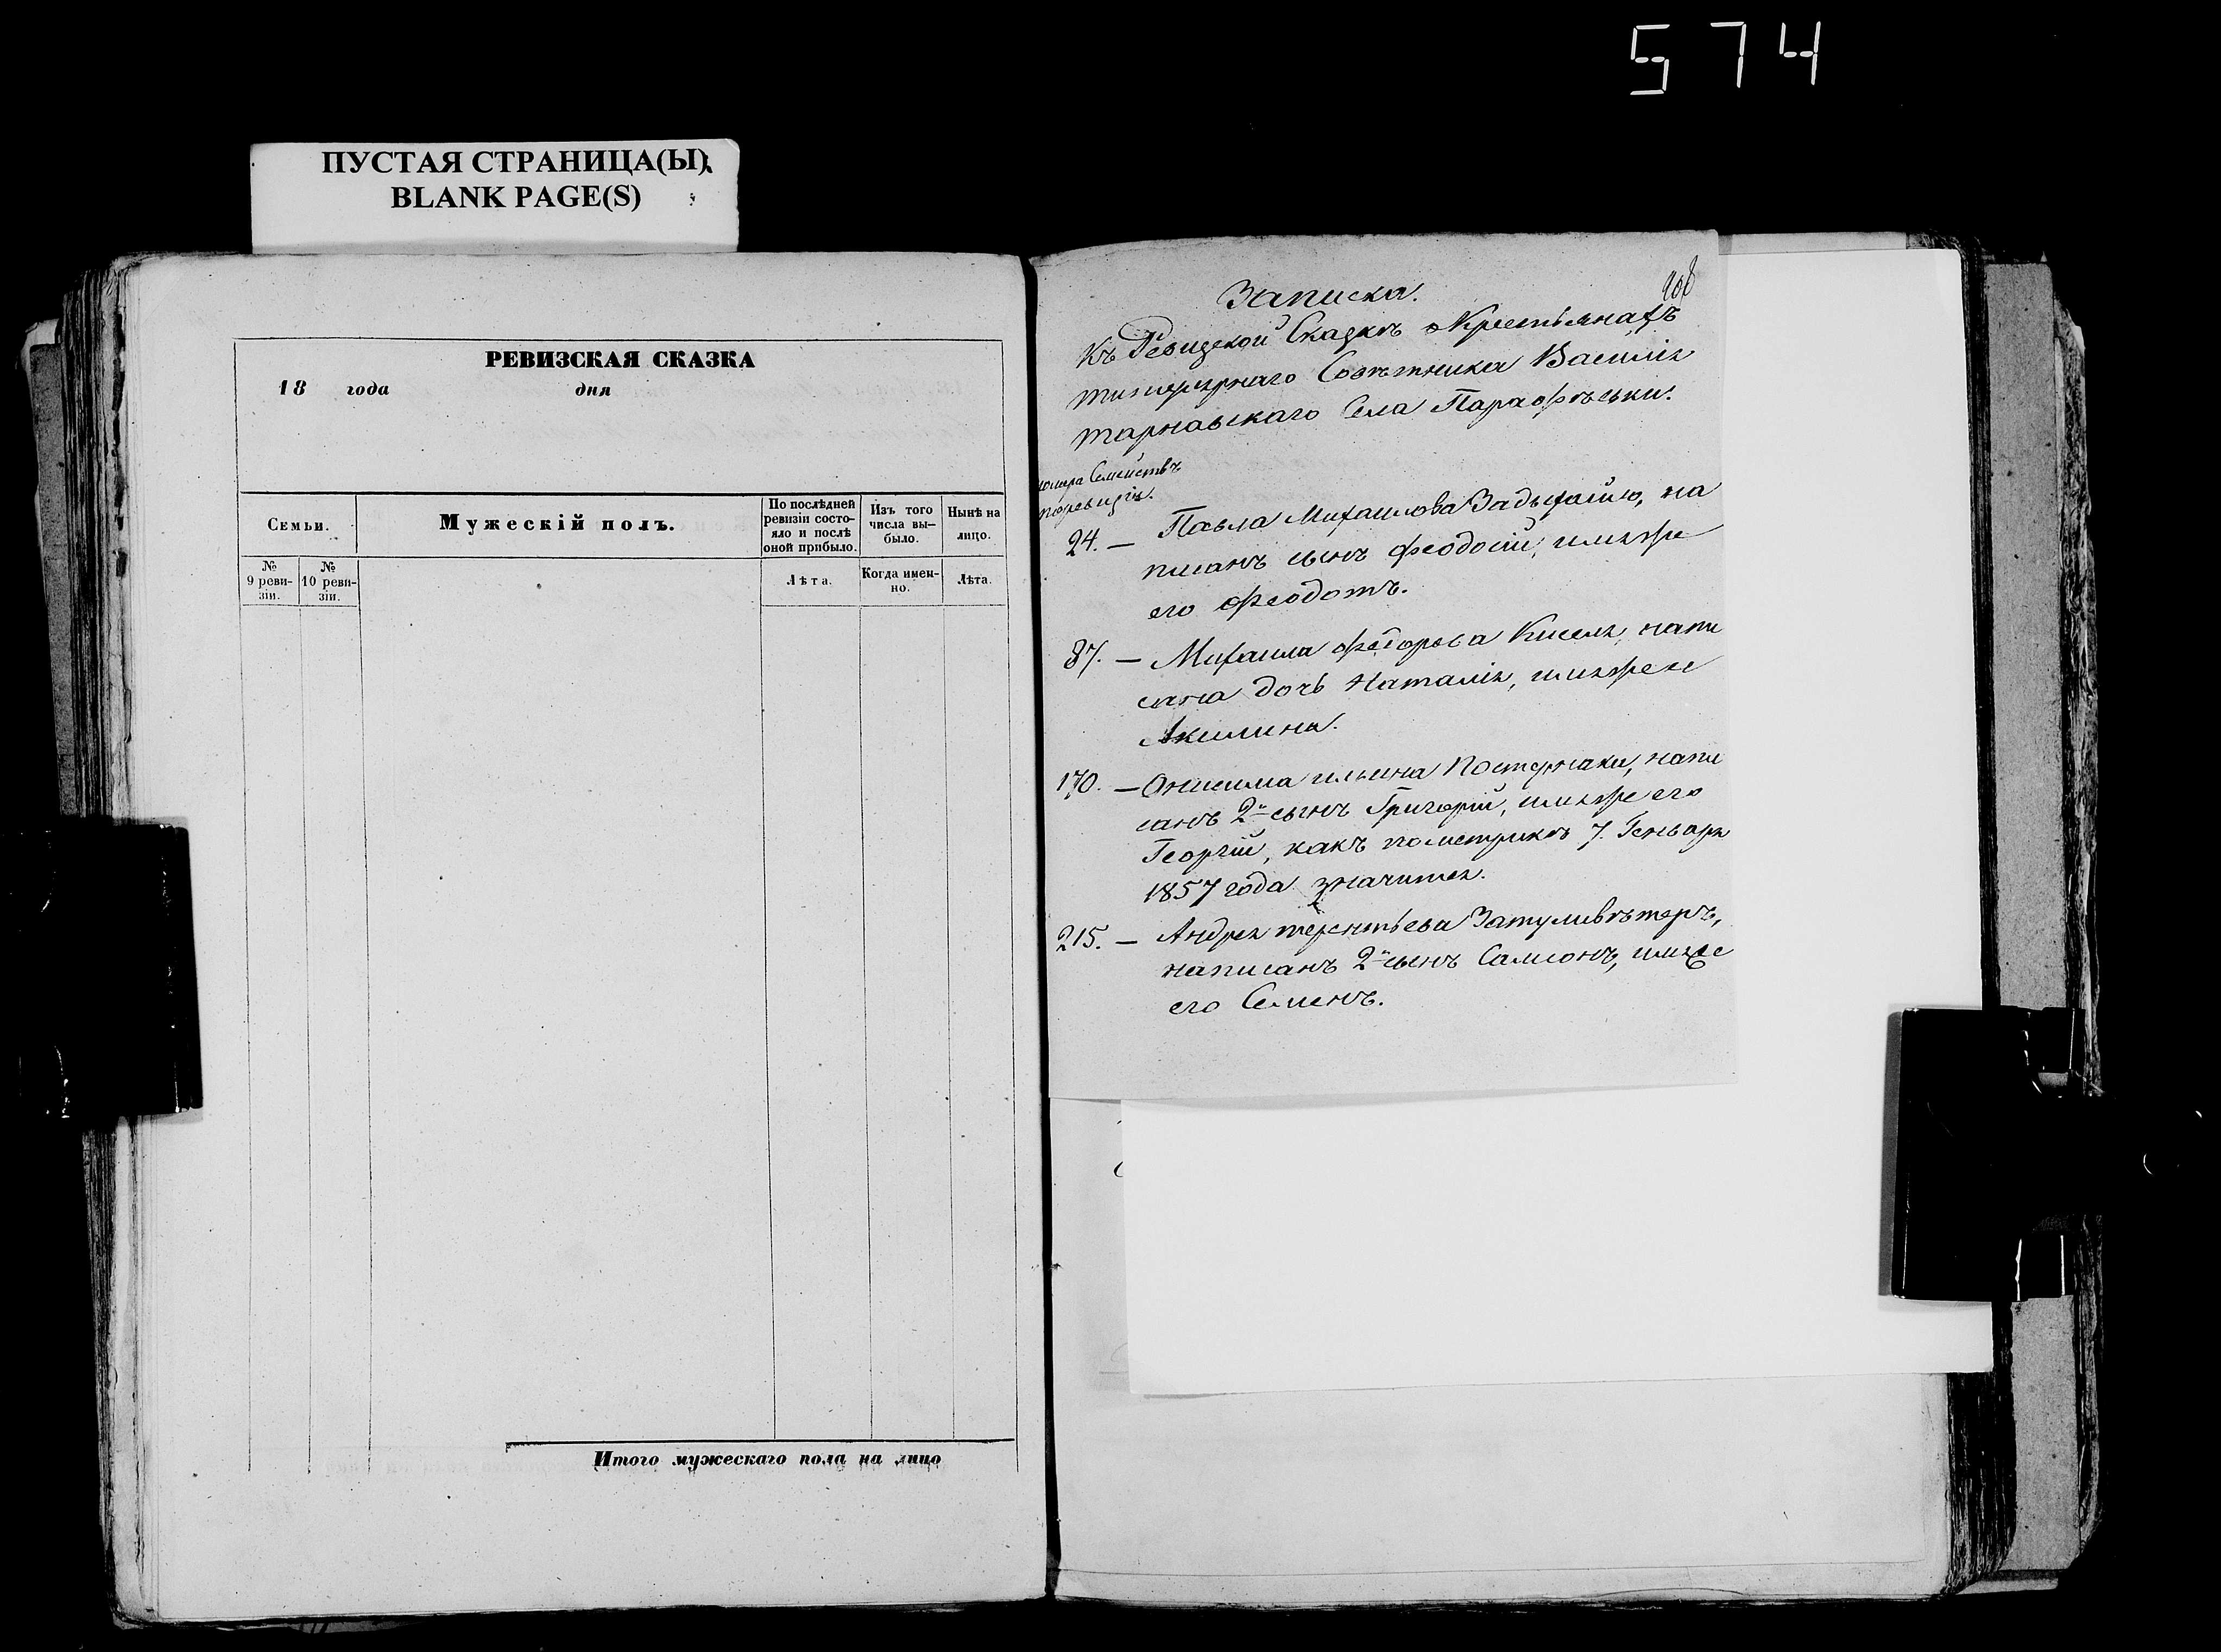 574
ПУСТАЯ СТРАНИЦА(Ы)
BLANK PAGE(S)
РЕВИЗСКАЯ СКАЗКА
18 года дня
Семьи.
Мужескій полъ.
По послѣдней
ревизіи состо-
яло и послѣ
оной прибыло.
Изъ того
числа вы-
было.
Нынѣ на
лицо.
№
9 реви-
зіи.
№
10 реви-
зіи.
Лѣта.
Когда имен-
но.
Лѣта.
Итого мужескаго пола на лицо
408
Записка.
Къ Ревизской Сказкѣ о Крестьянахъ
титулярнаго Совѣтника Василія
тарнавскаго Села Парафѣевки.
номера Семействъ
по ревизіи.
24. — Павла Михаилова, на
писанъ сынъ феодосій, имя же
его феодотъ.
87. — Михаила федорова Киселя, напи
сана дочь Наталія, имя же ее
Акилина.
170. — Онисима ильина Постернака, напи
санъ 2й сынъ Григорій, имя же его
Георгій, какъ по метрикѣ 7. Генваря
1857 года значится.
215. — Андрея терентьева Затуливѣтеръ,
написанъ 2й сынъ Самсонъ, имя же
его Семенъ.